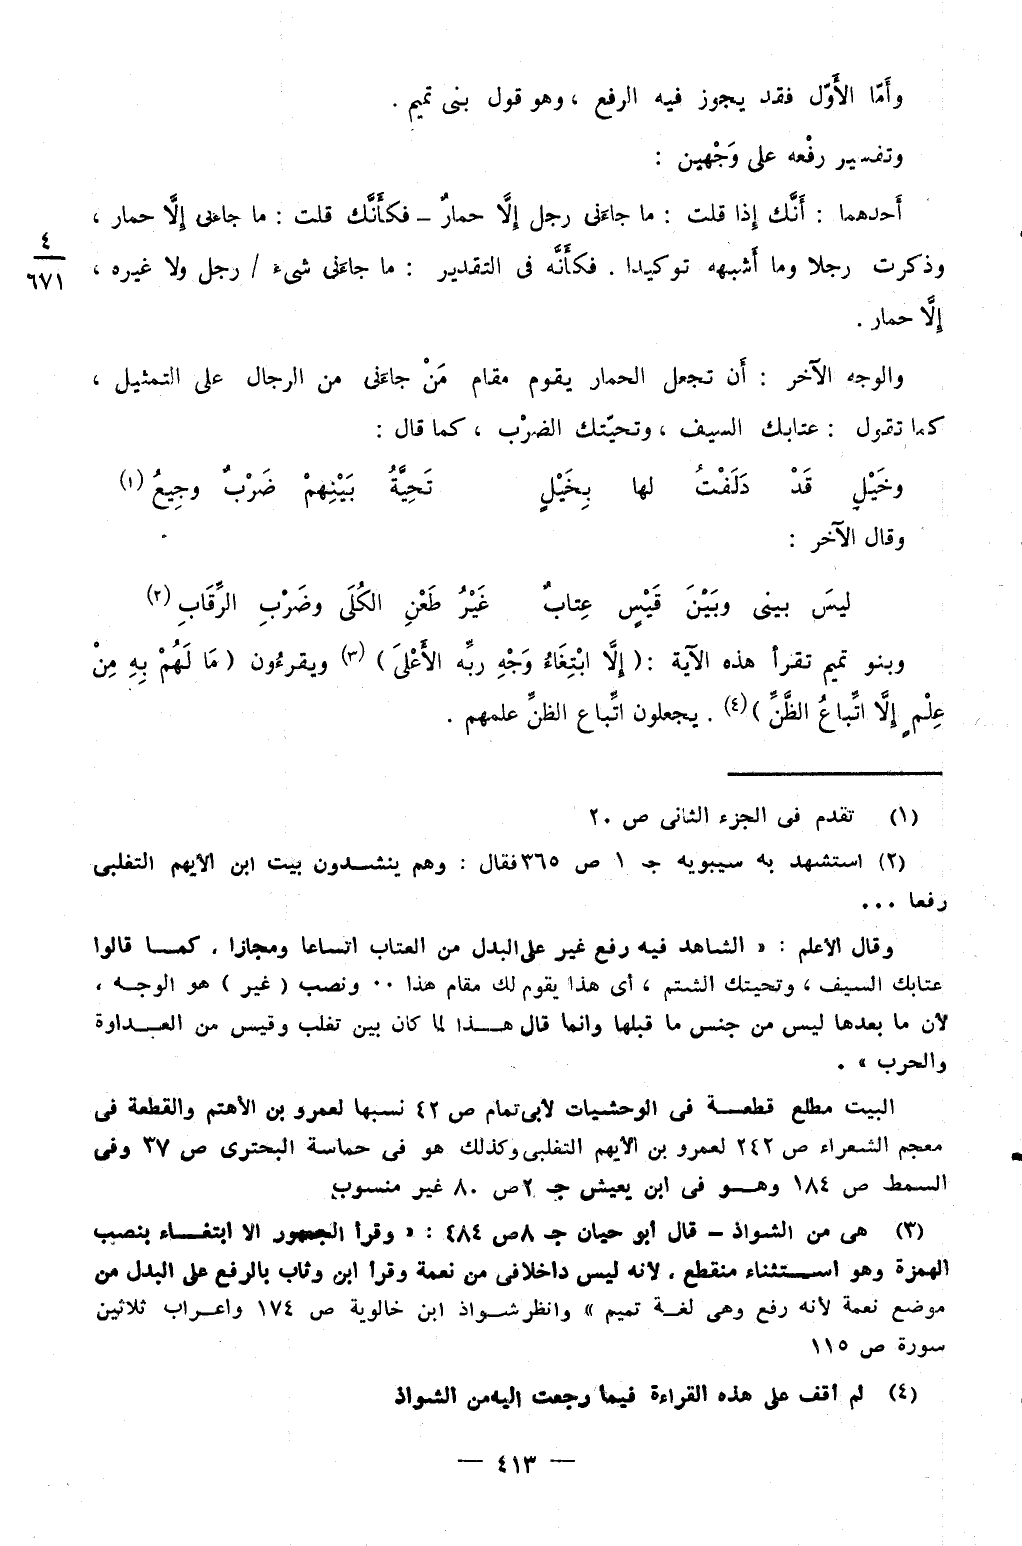 وأَمّا الأَوّل فقد يجوز فيه الرفع ، وهو قول بنى تميم .
وتفسير رفْعه على وَجْهين :
أَحدهما : أَنَّك إِذا قلت : ما جاءَنى رجل إِلَّا حمارٌ – فكأَنَّك قلت : ما جاءنى إِلَّا حمار ،
وذكرت رجلا وما أَشبهه توكيدا . فكأَنَّه فى التقدير : ما جاءَنى شىء / رجل ولا غيره ،
٤
٦٧١
إِلَّا حمار .
والوجه الآخر : أَن تجعل الحمار يقوم مقام مَنْ جاءَنى من الرجال على التمثيل ،
كما تقول : عتابك السيف ، وتحيّتك الضرْب ، كما قال :
وخَيْلٍ قَدْ دَلَفْتُ لها بِخَيْلٍ تَحِيَّةُ بَيْنِهِمْ ضَرْبٌ وجِيعُ (١)
وقال الآخر :
ليسَ بينى وبَيْنَ قَيْسٍ عِتابٌ غَيْرُ طَعْنِ الكُلَى وضَرْبِ الرِّقَابِ (٢)
وبنو تميم تقرأ هذه الآية : ( إِلَّا ابْتِغَاءُ وَجْهِ ربِّه الأَعْلىَ ) (٣) ويقرءُون ( مَا لَهُمْ بِهِ مِنْ
عِلْمٍ إِلَّا اتِّباعُ الظَّنِّ ) (٤) . يجعلون اتِّباع الظنِّ علمهم .
(١) تقدم فى الجزء الثانى ص ٢٠
(٢) استشهد به سيبويه جـ ١ ص ٣٦٥ فقال : وهم ينشدون بيت ابن الايهم التغلبى
رفعا ...
وقال الاعلم : « الشاهد فيه رفع غير على البدل من العتاب اتساعا ومجازا ، كما قالوا
عتابك السيف ، وتحيتك الشتم ، أى هذا يقوم لك مقام هذا ٠٠ ونصب ( غير ) هو الوجه ،
لأن ما بعدها ليس من جنس ما قبلها وانما قال هذا لما كان بين تغلب وقيس من العداوة
والحرب » .
البيت مطلع قطعة فى الوحشيات لأبى تمام ص ٤٢ نسبها لعمرو بن الأهتم والقطعة فى
معجم الشعراء ص ٢٤٢ لعمرو بن الايهم التغلبى وكذلك هو فى حماسة البحترى ص ٣٧ وفى
السمط ص ١٨٤ وهو فى ابن يعيش جـ ٢ ص ٨٠ غير منسوب
(٣) هى من الشواذ – قال أبو حيان جـ ٨ ص ٤٨٤ : « وقرأ الجمهور الا ابتغاء بنصب
الهمزة وهو استثناء منقطع ، لأنه ليس داخلا فى من نعمة وقرأ ابن وثاب بالرفع على البدل من
موضع نعمة لأنه رفع وهى لغة تميم » وانظر شواذ ابن خالوية ص ١٧٤ واعراب ثلاثين
سورة ص ١١٥
(٤) لم أقف على هذه القراءة فيما رجعت اليه من الشواذ
— ٤١٣ —